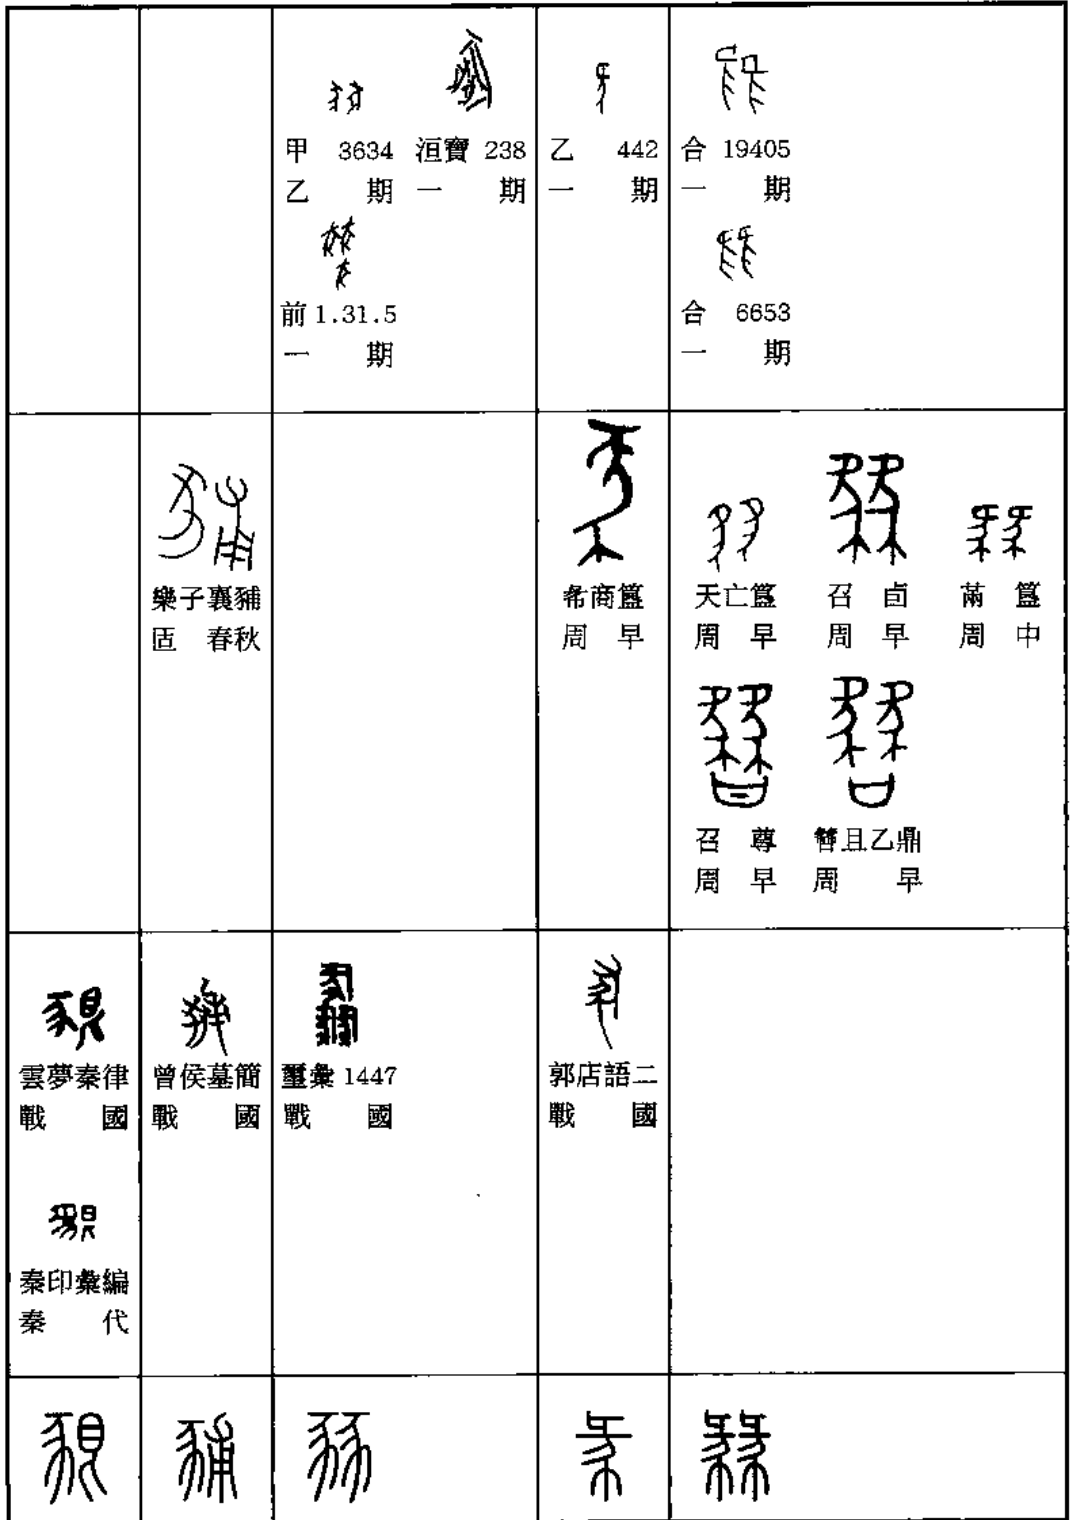 甲 3634
乙 期
洹寶 238
一 期
前 1.31.5
一 期
乙 442
一 期
合 19405
一 期
合 6653
一 期
樂子襄豧
𠤳 春秋
㣇商簋
周 早
天亡簋
周 早
召 卣
周 早
㒼 簋
周 中
召 尊
周 早
且乙鼎
周 早
雲夢秦律
戰 國
秦印彙編
秦 代
曾侯墓簡
戰 國
璽彙 1447
戰 國
郭店語二
戰 國